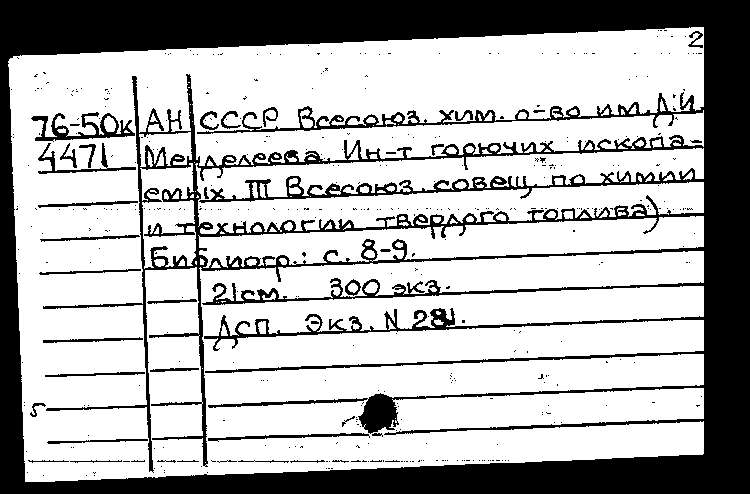 2
76-50к АН СССР. Всесоюз. хим. о-во им. Д.И.
4471 Менделеева. Ин-т горючих ископа=
емых. III Всесоюз. совещ. по химии
и технологии твердого топлива).
Библиогр.: с. 8-9.
21см. 300 экз.
ДСП. Экз. N 281.
5